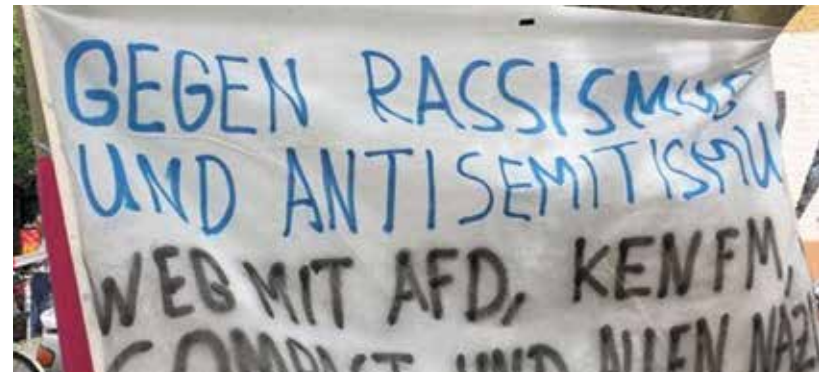 GEGEN RASSISMUS
UND ANTISEMITISMU
WEG MIT AFD, KENFM,
COMPACT UND ALLEN NAZI